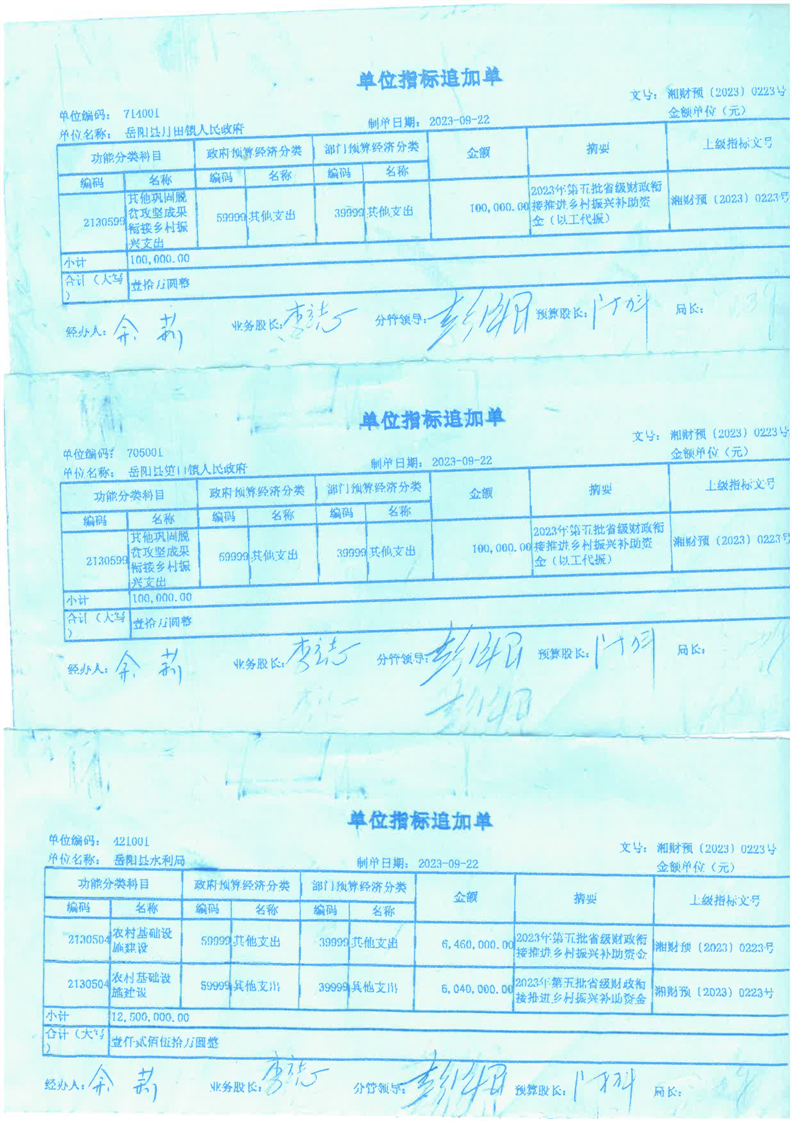 单位指标追加单
文号: 湘财预〔2023〕0223号
单位编码: 714001
金额单位（元）
单位名称: 岳阳县月田镇人民政府
制单日期: 2023-09-22
功能分类科目 政府预算经济分类 部门预算经济分类 金额 摘要 上级指标文号
编码 名称 编码 名称 编码 名称
2130599 其他巩固脱贫攻坚成果衔接乡村振兴支出 59999 其他支出 39999 其他支出 100,000.00 2023年第五批省级财政衔接推进乡村振兴补助资金（以工代振） 湘财预〔2023〕0223号
小计 100,000.00
合计（大写） 壹拾万圆整
经办人: 余 业务股长: 李 分管领导: 彭 预算股长: 局长:
单位指标追加单
文号: 湘财预〔2023〕0223号
单位编码: 705001
金额单位（元）
单位名称: 岳阳县筻口镇人民政府
制单日期: 2023-09-22
功能分类科目 政府预算经济分类 部门预算经济分类 金额 摘要 上级指标文号
编码 名称 编码 名称 编码 名称
2130599 其他巩固脱贫攻坚成果衔接乡村振兴支出 59999 其他支出 39999 其他支出 100,000.00 2023年第五批省级财政衔接推进乡村振兴补助资金（以工代振） 湘财预〔2023〕0223号
小计 100,000.00
合计（大写） 壹拾万圆整
经办人: 余 业务股长: 李 分管领导: 彭 预算股长: 局长:
单位指标追加单
单位编码: 421001
文号: 湘财预〔2023〕0223号
单位名称: 岳阳县水利局
制单日期: 2023-09-22
金额单位（元）
功能分类科目 政府预算经济分类 部门预算经济分类 金额 摘要 上级指标文号
编码 名称 编码 名称 编码 名称
2130504 农村基础设施建设 59999 其他支出 39999 其他支出 6,460,000.00 2023年第五批省级财政衔接推进乡村振兴补助资金 湘财预〔2023〕0223号
2130504 农村基础设施建设 59999 其他支出 39999 其他支出 6,040,000.00 2023年第五批省级财政衔接推进乡村振兴补助资金 湘财预〔2023〕0223号
小计 12,500,000.00
合计（大写） 壹仟贰佰伍拾万圆整
经办人: 余 业务股长: 李 分管领导: 彭 预算股长: 局长: